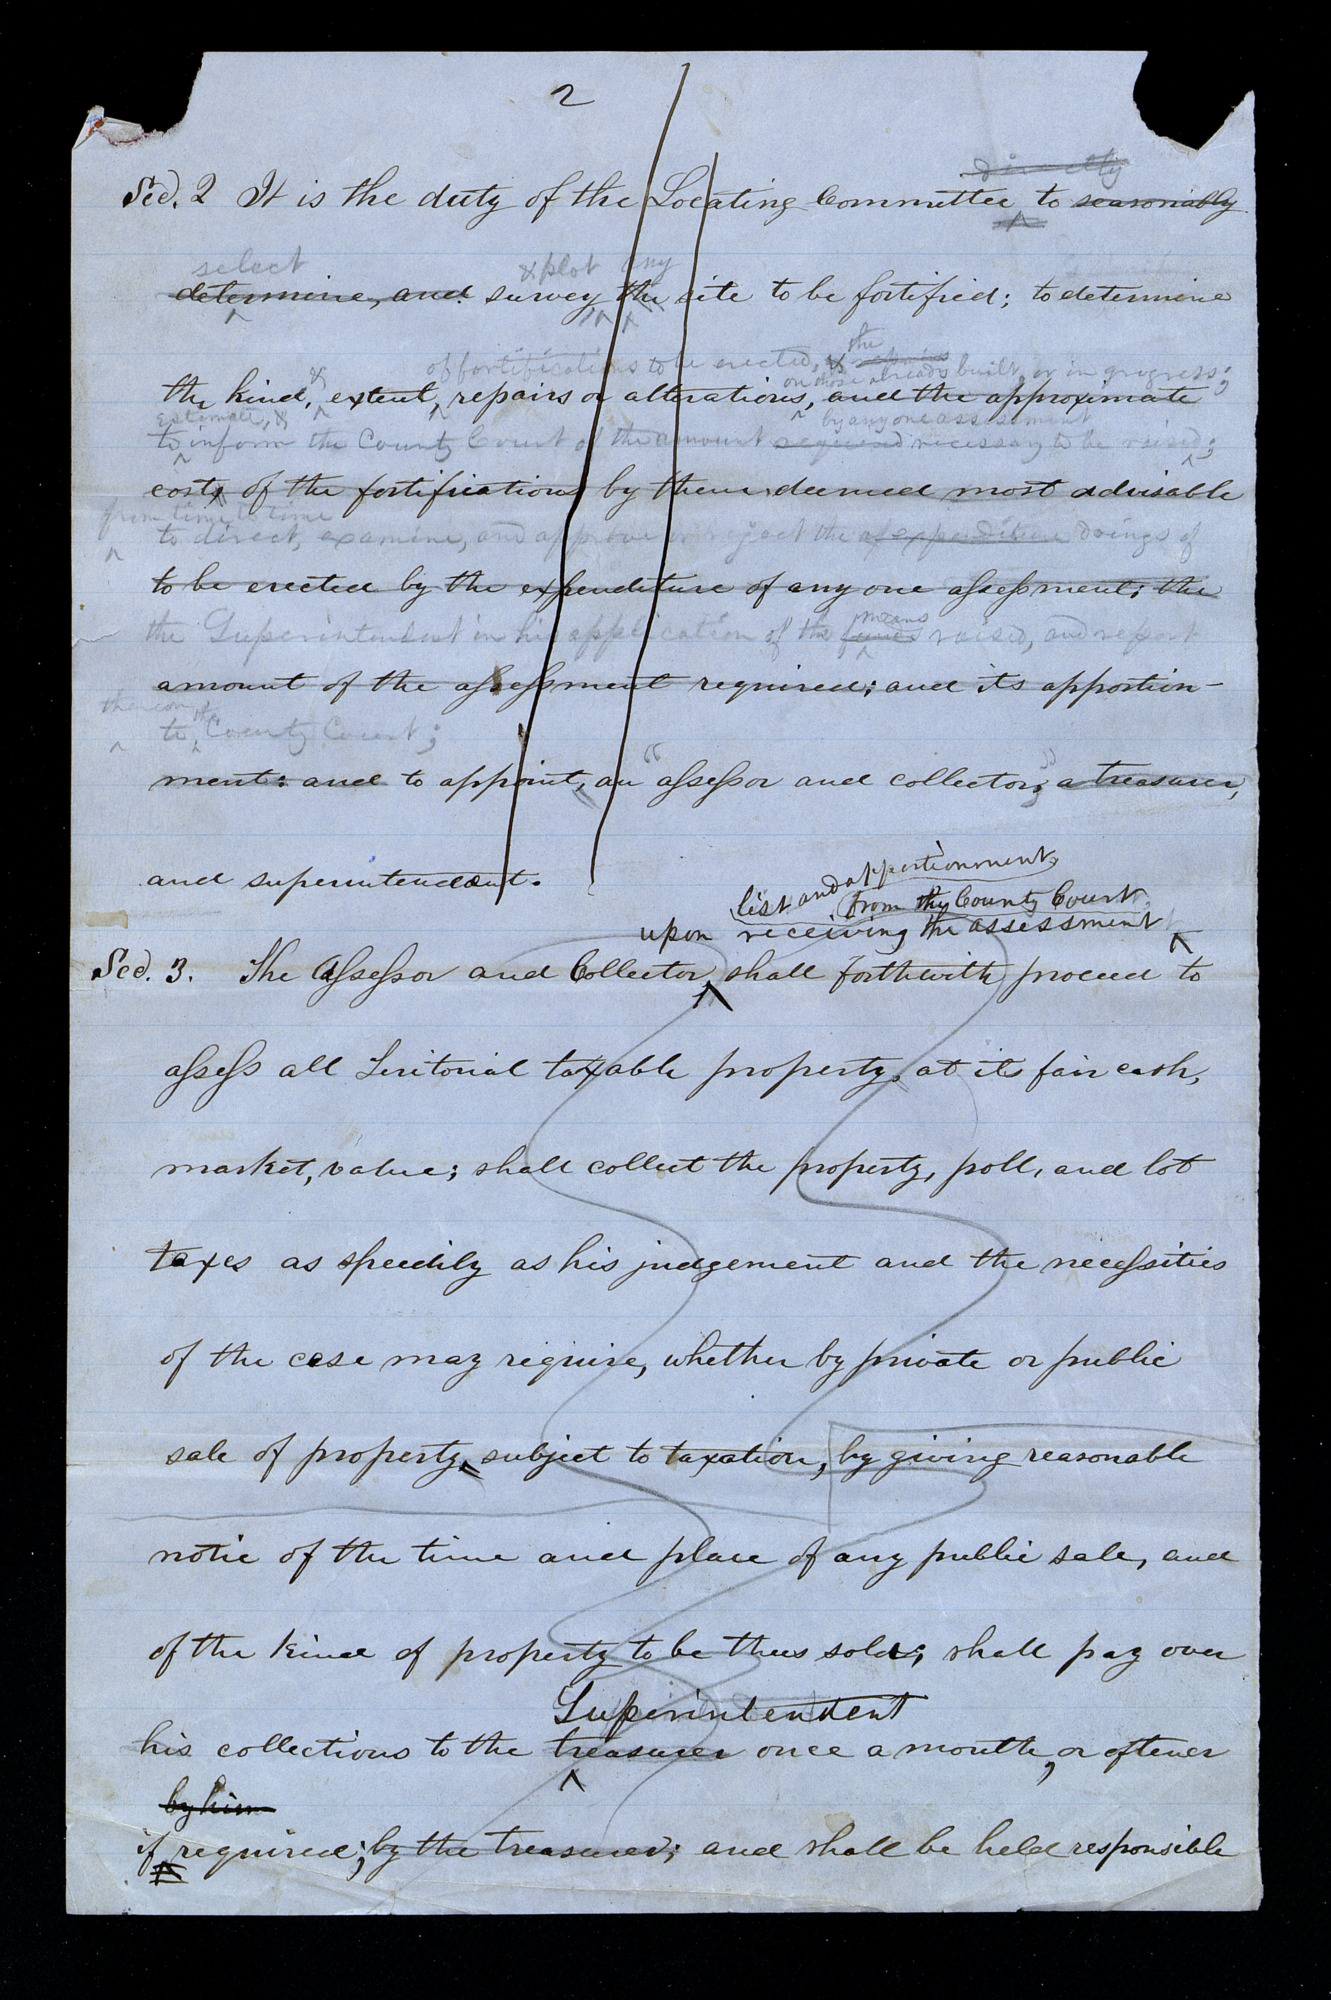 2
directly
Sec. 2 It is the duty of the Locating Committee to seasonably
select & plot any
determine, and survey, the site to be fortified; to determine
of fortifications to be erected, & the repairs
& on those already built, or in progress;
the kind, extent, repairs or alterations, and the approximate
estimate, & by any one assessment
to inform the County Court of the amount required necessary to be raised;
costs of the fortifications by them deemed most advisable
from time to time
to direct, examine, and approve or reject the expenditure doings of
to be erected by the expenditure of any one assessment; the
means
the Superintendent in his application of the funds raised, and report
amount of the assessment required; and its apportion-
thereon the
to County Court;
ment: and to appoint, an "assessor and collector;" a treasurer,
and superintendent.
list and apportionment,
from the County Court,
upon receiving the assessment
Sec. 3. The Assessor and Collector, shall forthwith proceed to
assess all Teritorial taxable property, at its fair cash,
market, value; shall collect the property, poll, and lot
taxes as speedily as his judgement and the necessities
of the case may require, whether by private or public
sale of property, subject to taxation, by giving reasonable
notice of the time and place of any public sale, and
of the kind of property to be thus sold; shall pay over
Superintendent
his collections to the treasurer once a month, or oftener
by him
if required; by the treasurer; and shall be held responsible